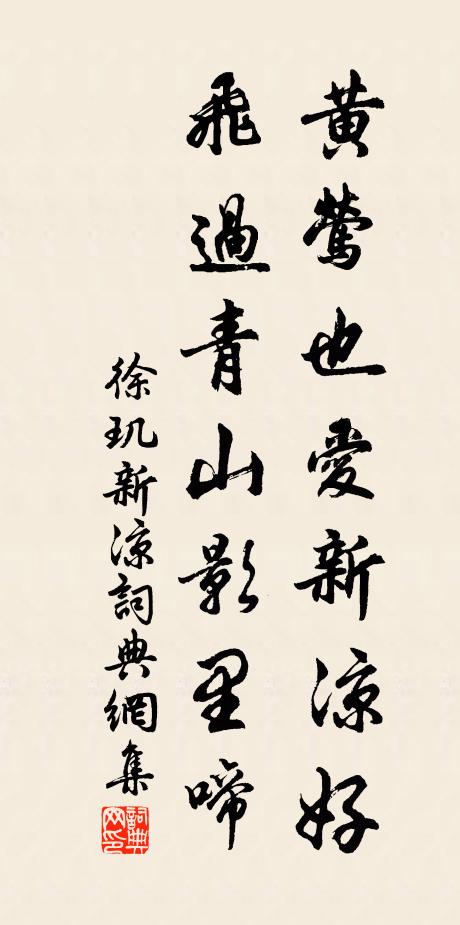 黃鶯也愛新涼好
飛過青山影里啼
徐玑新涼詞典網集
詞典网印